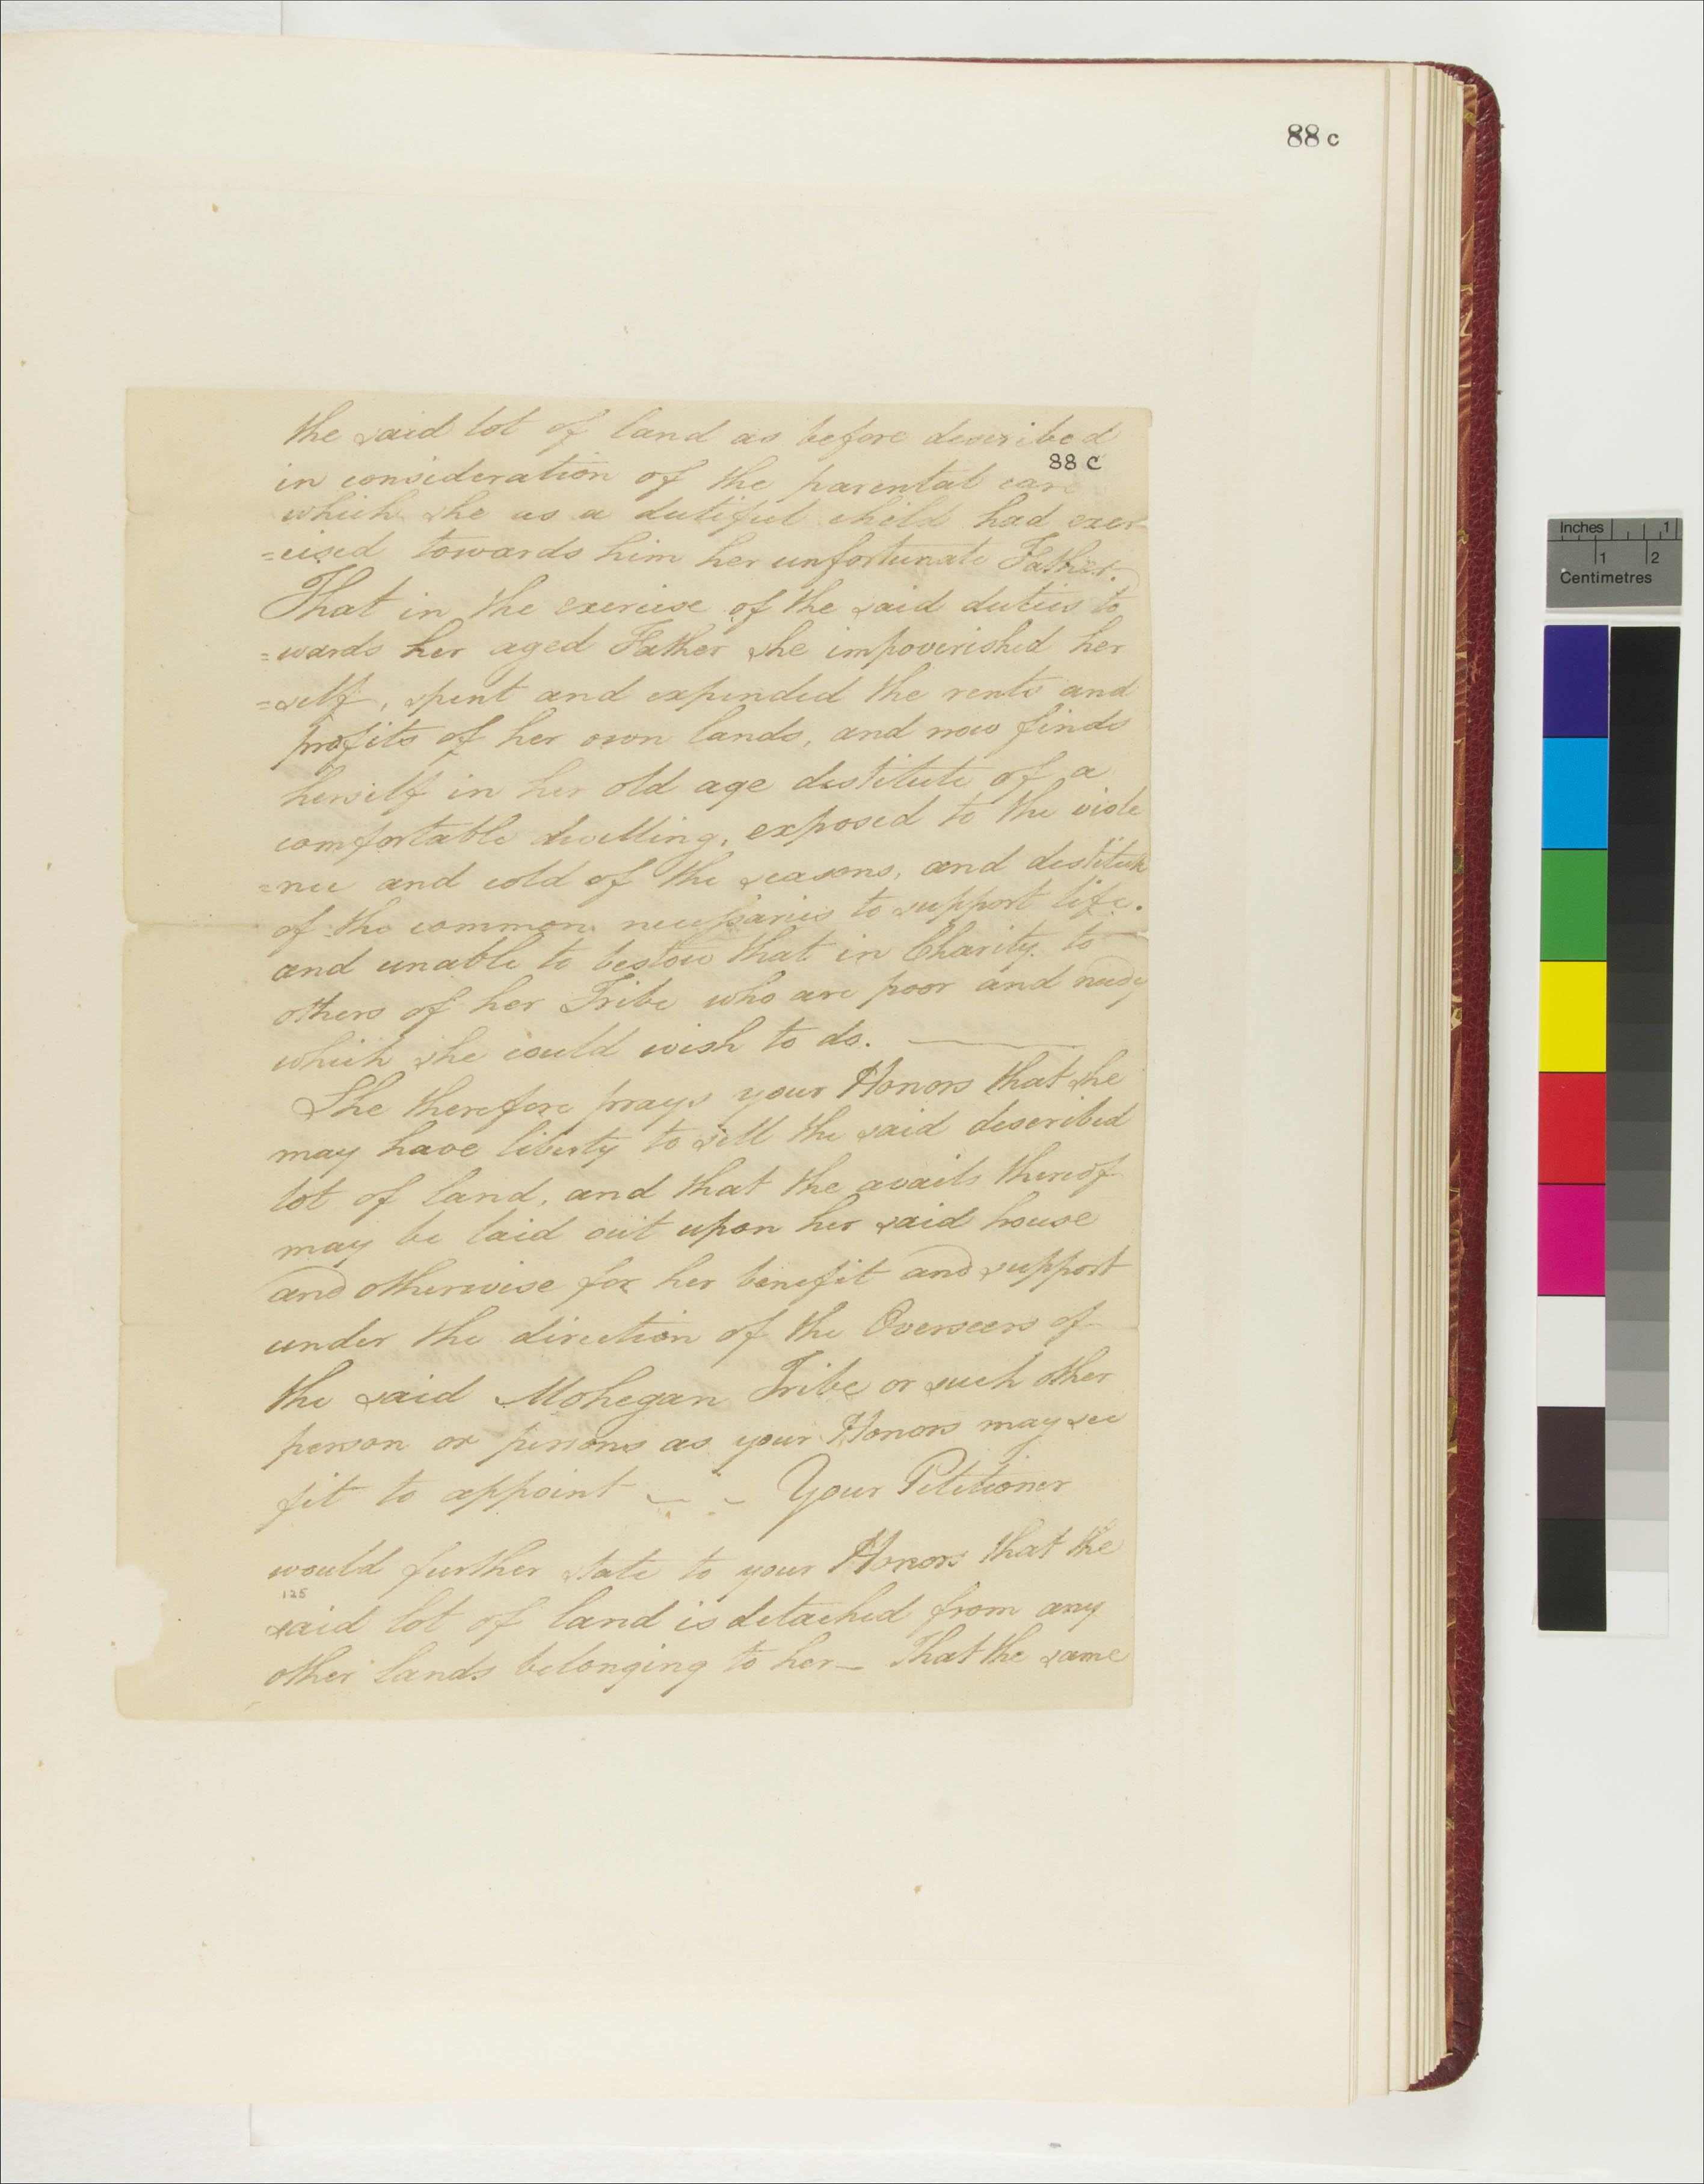 88 c
the said lot of land as before described
88 C
in consideration of the parental care
which she as a dutiful child had exer-
=cised towards him her unfortunate Father.
That in the exercise of the said duties to
=wards her aged Father she impoverished her
=self, spent and expended the rents and
profits of her own lands, and now finds
herself in her old age destitute of a
comfortable dwelling, exposed to the viole
=nce and cold of the seasons, and destitute
of the common necessaries to support life.
and unable to bestow that in Charity to
others of her Tribe who are poor and needy
which she could wish to do. —
She therefore prays your Honors that she
may have liberty to sell the said described
lot of land, and that the avails thereof
may be laid out upon her said house
and otherwise for her benefit and support
under the direction of the Overseers of
the said Mohegan Tribe or such other
person or persons as your Honors may see
fit to appoint – – Your Petitioner
would further state to your Honors that the
125
said lot of land is detached from any
other lands belonging to her – That the same
Inches 1
1 2
Centimetres